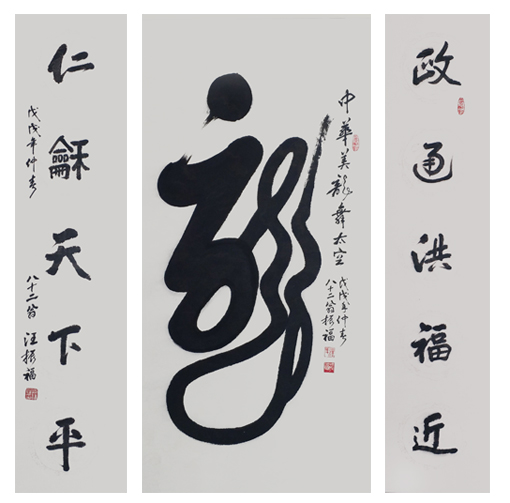 政通洪福近
龍
中華美龍舞太空
戊戌年仲春
八十二翁振福
仁龢天下平
戊戌年仲春
八十二翁 汪振福